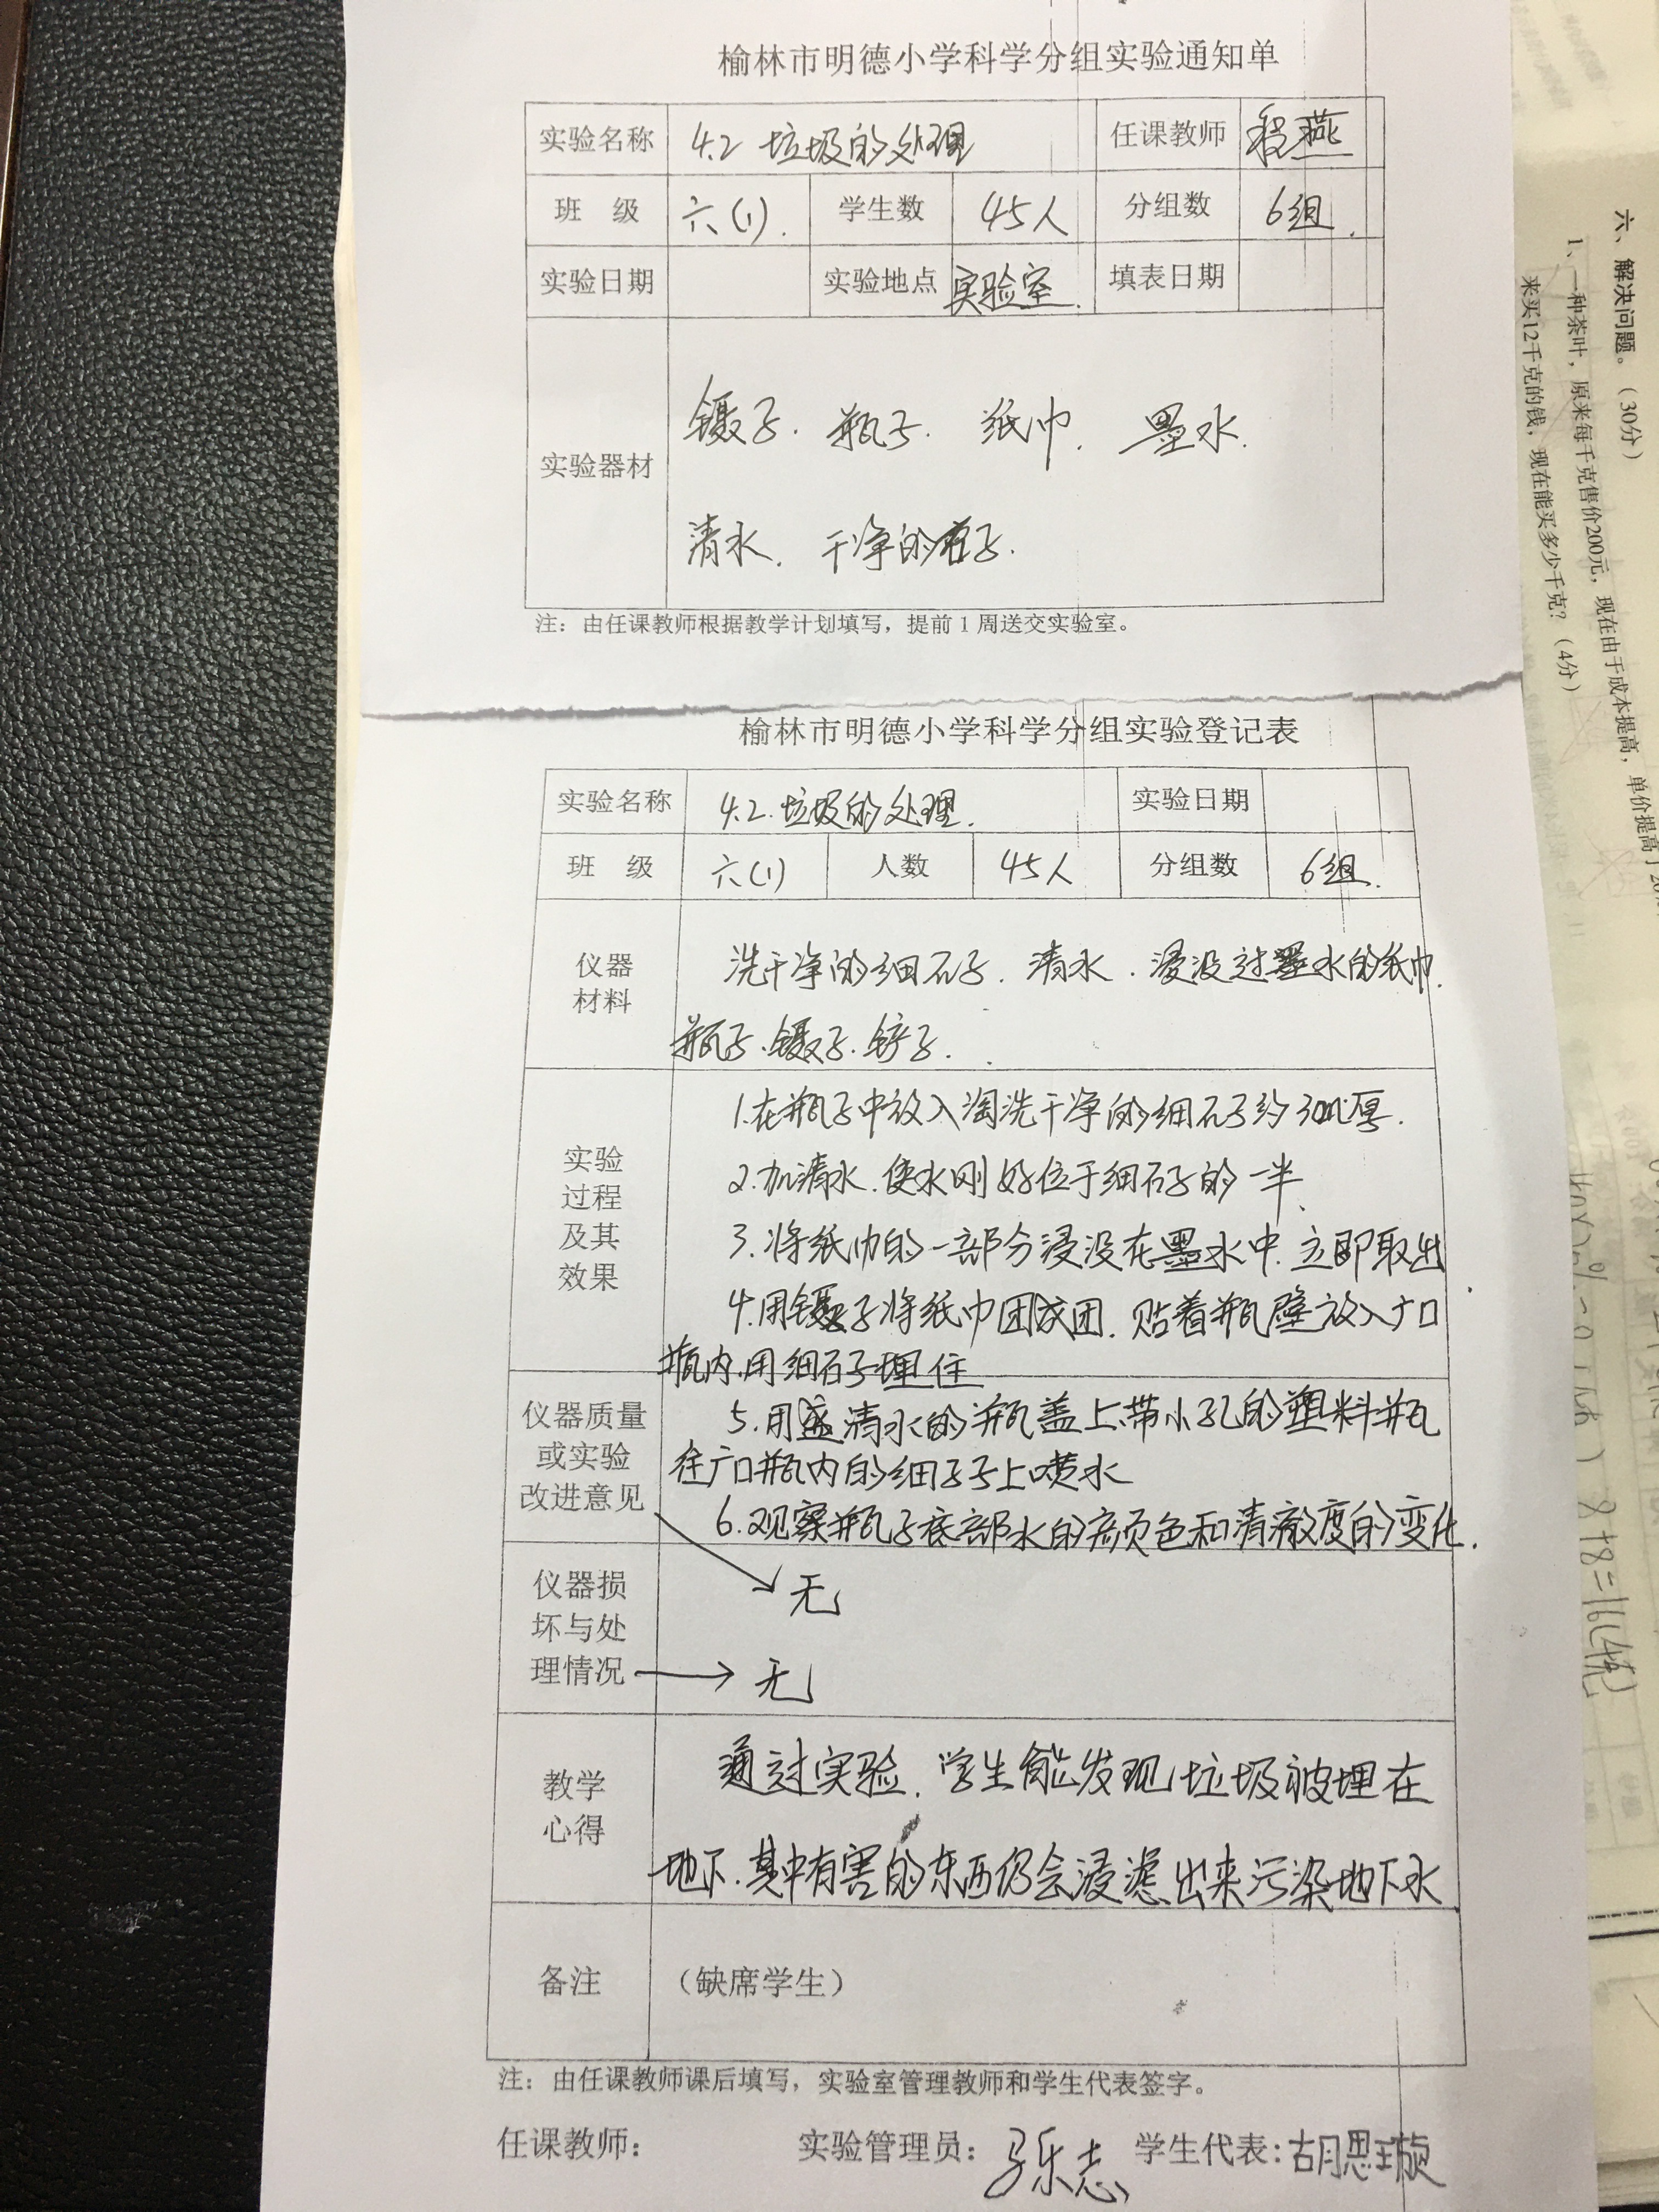 榆林市明德小学科学分组实验通知单
实验名称 4.2 垃圾的处理 任课教师 程燕
班 级 六(1). 学生数 45人 分组数 6组.
实验日期 实验地点 实验室. 填表日期
镊子. 瓶子. 纸巾. 墨水.
实验器材
清水. 干净的石子.
注：由任课教师根据教学计划填写，提前1周送交实验室。
榆林市明德小学科学分组实验登记表
实验名称 4.2.垃圾的处理. 实验日期
班 级 六(1) 人数 45人 分组数 6组.
仪器
材料
洗干净的细石子. 清水. 浸没过墨水的纸巾.
瓶子.镊子.铲子.
实验
过程
及其
效果
1.在瓶子中放入淘洗干净的细石子约3cm厚.
2.加清水.使水刚好位于细石子的一半.
3.将纸巾的一部分浸没在墨水中.立即取出
4.用镊子将纸巾团成团.贴着瓶壁放入广口
瓶内.用细石子埋住
仪器质量
或实验
改进意见
5.用盛清水的瓶盖上带小孔的塑料瓶
往广口瓶内的细子子上喷水
6.观察瓶子底部水的颜色和清澈度的变化.
无
仪器损
坏与处
理情况
无
教学
心得
通过实验.学生能发现垃圾被埋在
地下.其中有害的东西仍会浸滤出来污染地下水
备注 （缺席学生）
注：由任课教师课后填写，实验室管理教师和学生代表签字。
任课教师： 实验管理员： 学生代表：胡思璇
六、解决问题。（30分）
1、一种茶叶，原来每千克售价200元，现在由于成本提高，单价提高了
来买12千克的钱，现在能买多少千克？（4分）
8+8=16(